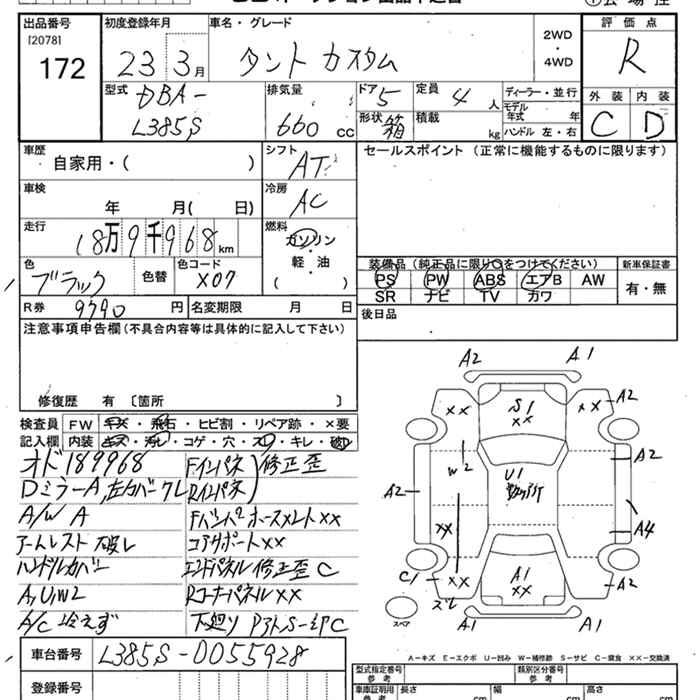 出品番号 初度登録年月 車名・グレード 評価点
[2078]
172 23 年 3月 タント カスタム 2WD ・ 4WD R
型式 排気量 ドア 定員 ディーラー・並行 外装 内装
DBA- 5 4人 モデル年式 年
L385S 660cc 形状 箱 積載 kg ハンドル 左・右 C D
車歴 シフト セールスポイント (正常に機能するものに限ります)
自家用・( ) AT
車検 冷房
年 月( 日) AC
走行 燃料
18万9千968km ガソリン・軽・油
色 色替 色コード ( ) 装備品(純正品に限り○をつけてください) 新車保証書
ブラック X07 PS PW ABS エアB AW 有・無
SR ナビ TV カワ
R券 9790円 名変期限 月 日 後日品
注意事項申告欄(不具合内容等は具体的に記入して下さい)
修復歴 有 〔箇所 〕
検査員 FW キズ・飛石・ヒビ割・リペア跡・×要
記入欄 内装 キズ・汚レ・コゲ・穴・スレ・キレ・破レ
オド189968 Fインパネ 修正歪
DミラーA, Rインパネ
A/W A ××
アームレスト破レ コアサポート××
ハンドルカバー エンドパネル修正歪C
A,U,W2 Rコーナーパネル××
A/C冷えず 下廻り
A2 A1
×× S1 ×× ×× A2
W2 U1
A2
×× A4
C1 ×× A1 ×× A2
A1 A1
スペア
A-キズ E-エクボ U-凹み W-補修跡 S-サビ C-腐食 ××-交換済
車台番号 L385S-0055928
登録番号
型式指定番号 参考 類別区分番号 参考
車庫証明用 参考 長さ cm 幅 cm 高さ cm